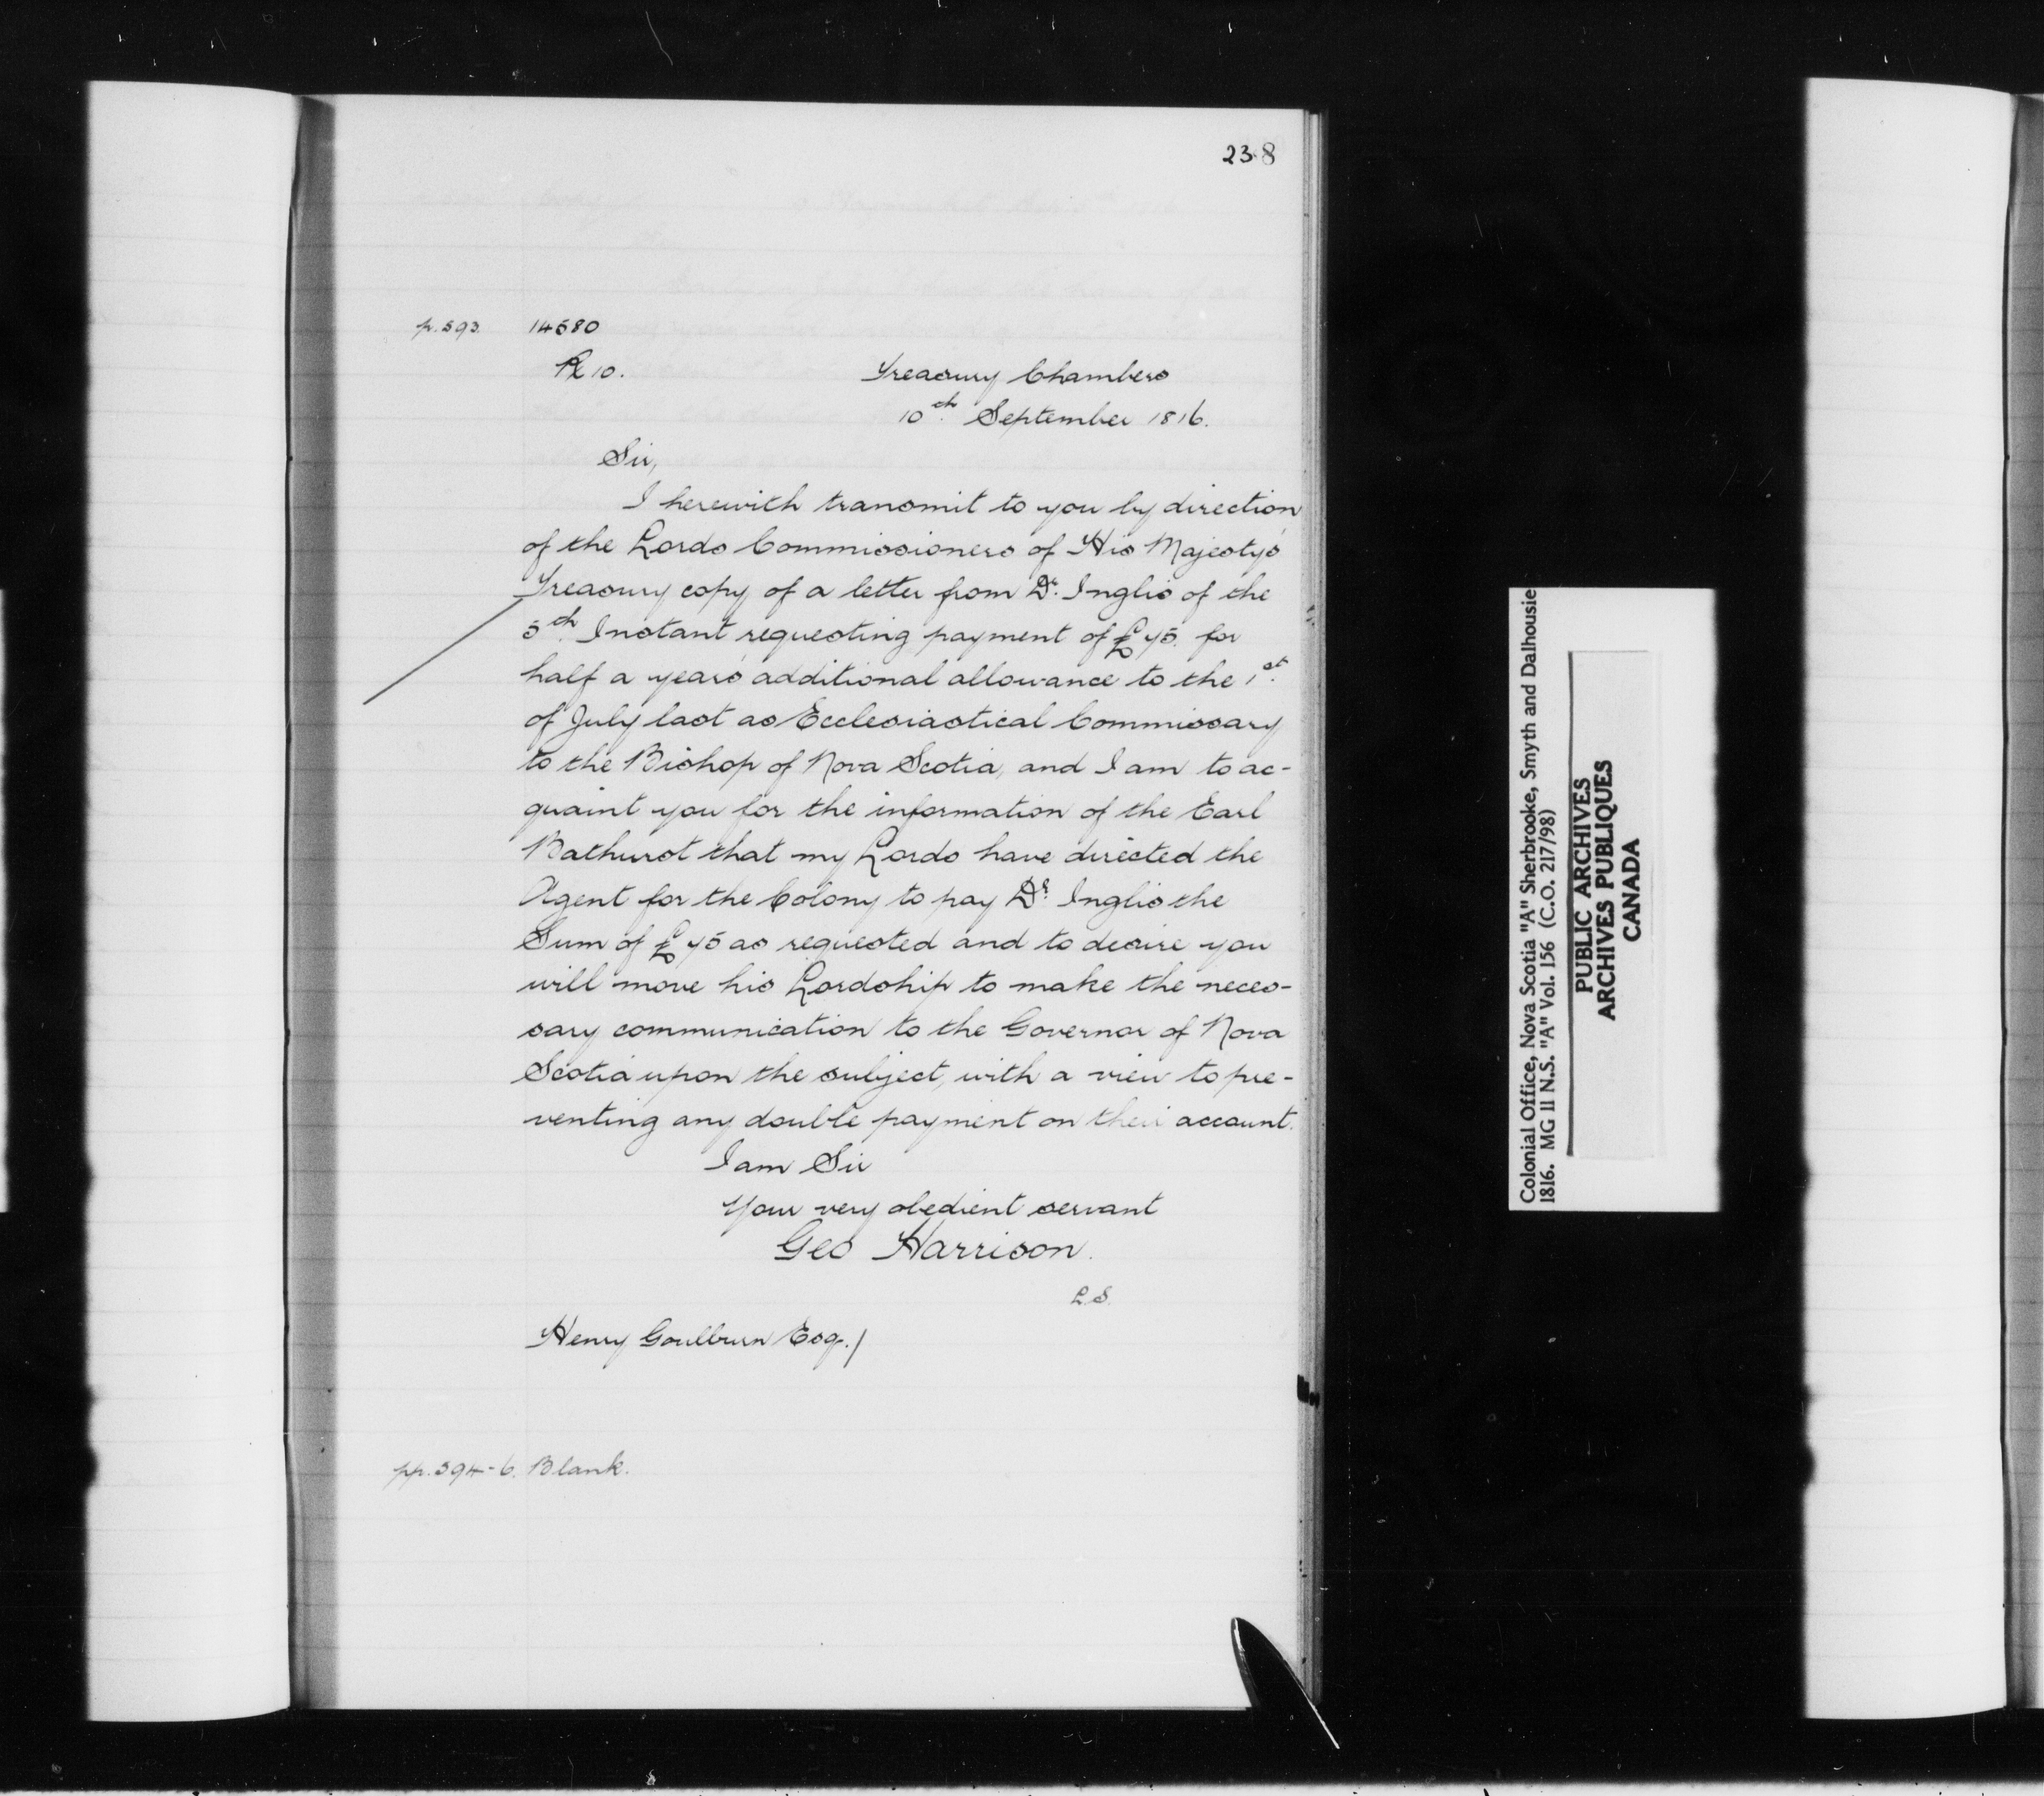 238
p. 593. 14580
R 10. Treasury Chambers
10th September 1816.
Sir,
I herewith transmit to you by direction
of the Lords Commissioners of His Majesty's
Treasury copy of a letter from Dr. Inglis of the
5th Instant requesting payment of £75. for
half a year's additional allowance to the 1st.
of July last as Ecclesiastical Commissary
to the Bishop of Nova Scotia, and I am to ac-
quaint you for the information of the Earl
Bathurst that my Lords have directed the
Agent for the Colony to pay Dr. Inglis the
Sum of £75 as requested and to desire you
will move his Lordship to make the neces-
sary communication to the Governor of Nova
Scotia upon the subject, with a view to pre-
venting any double payment on their account.
I am Sir
Your very obedient servant
Geo Harrison.
L.S.
Henry Goulburn Esq./
pp. 594-6. Blank.
Colonial Office, Nova Scotia "A" Sherbrooke, Smyth and Dalhousie
1816. MG 11 N.S. "A" Vol. 156 (C.O. 217/98)
PUBLIC ARCHIVES
ARCHIVES PUBLIQUES
CANADA